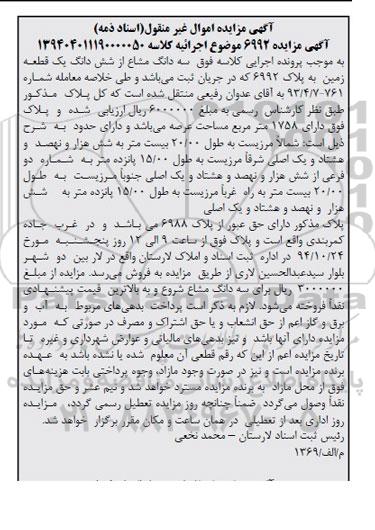 آگهی مزایده اموال غیر منقول(اسناد ذمه)
آگهی مزایده ۶۹۹۲ موضوع اجرائیه کلاسه ۱۳۹۴۰۴۰۱۱۱۹۰۰۰۰۰۵۰
به موجب پرونده اجرایی کلاسه فوق سه دانگ مشاع از شش دانگ یک قطعه
زمین به پلاک ۶۹۹۲ که در جریان ثبت می‌باشد و طی خلاصه معامله شماره
۹۳/۴/۷-۷۶۱ به آقای عدوان رفیعی منتقل شده است که کل پلاک مذکور
طبق نظر کارشناس رسمی به مبلغ ۶۰۰۰۰۰۰ ریال ارزیابی شده و پلاک
فوق دارای ۱۷۵۸ متر مربع مساحت عرصه می‌باشد و دارای حدود به شرح
ذیل است: شمالاً مرزیست به طول ۲۰/۰۰ بیست متر به شش هزار و نهصد و
هشتاد و یک اصلی شرقاً مرزیست به طول ۱۵/۰۰ پانزده متر به شماره دو
فرعی از شش هزار و نهصد و هشتاد و یک اصلی جنوباً مرزیست به طول
۲۰/۰۰ بیست متر به راه غرباً مرزیست به طول ۱۵/۰۰ پانزده متر به شش
هزار و نهصد و هشتاد و یک اصلی
پلاک مذکور دارای حق عبور از پلاک ۶۹۸۸ می باشد و در غرب جاده
کمربندی واقع است و پلاک فوق از ساعت ۹ الی ۱۲ روز پنجشنبه مورخ
۹۴/۱۰/۲۴ در اداره ثبت اسناد و املاک لارستان واقع در لار بین دو شهر
بلوار سیدعبدالحسین لاری از طریق مزایده به فروش می‌رسد. مزایده از مبلغ
۳۰۰۰۰۰۰ ریال برای سه دانگ مشاع شروع و به بالاترین قیمت پیشنهادی
نقداً فروخته می‌شود. لازم به ذکر است پرداخت بدهی‌های مربوط به آب و
برق و گاز اعم از حق انشعاب و یا حق اشتراک و مصرف در صورتی که مورد
مزایده دارای آنها باشد و نیز بدهی‌های مالیاتی و عوارض شهرداری و غیره تا
تاریخ مزایده اعم از این که رقم قطعی آن معلوم شده یا نشده باشد به عهده
برنده مزایده است و نیز در صورت وجود مازاد، وجوه پرداختی بابت هزینه‌های
فوق از محل مازاد به برنده مزایده مسترد خواهد شد و نیم عشر و حق مزایده
نقداً وصول می‌گردد. ضمناً چنانچه روز مزایده تعطیل رسمی گردد، مزایده
روز اداری بعد از تعطیلی در همان ساعت و مکان مقرر برگزار خواهد شد.
رئیس ثبت اسناد لارستان – محمد نخعی
م/الف/۱۳۶۹